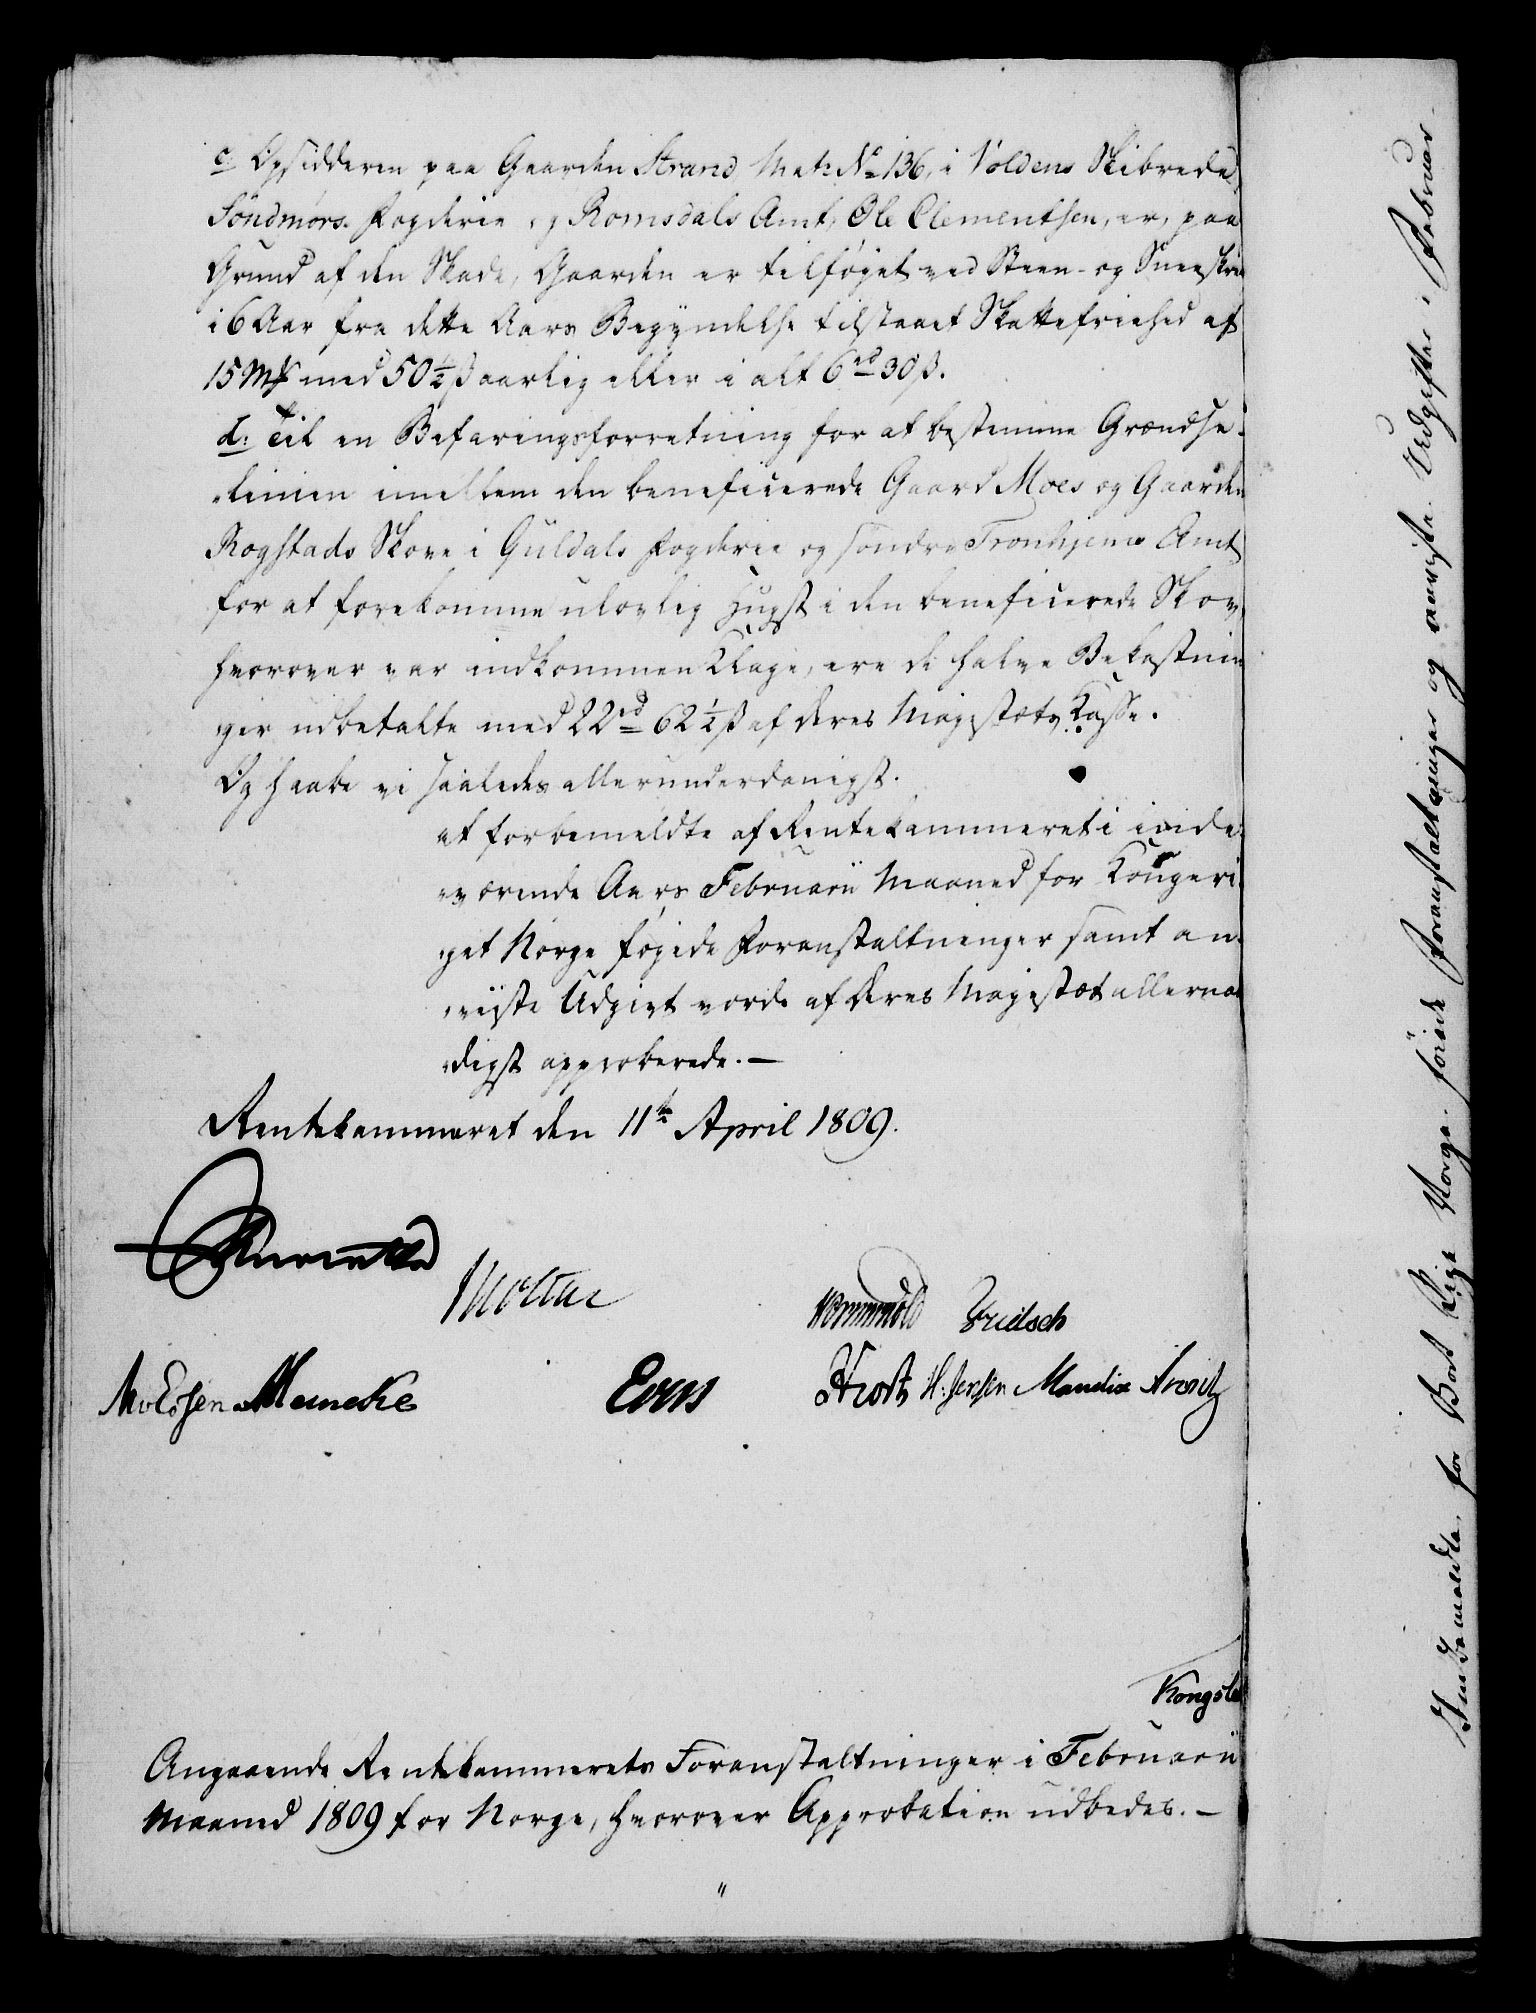 c. Opsidderen paa Gaarden Strand Matr. No 136, i Voldens Skibrede,
Søndmørs Fogderie og Romsdals Amt, Ole Clementsen, er, paa
Grund af den Skade, Gaarden er tilføyet ved Steen- og Sneeskre
i 6 Aar fra dette Aars Begyndelse tilstaaet Skattefriehed af
15 Mk med 50½ ß aarlig eller i alt 6 rd 30 ß.
d. Til en Befaringsforretning for at bestemme Grændse-
linien imellem den beneficerede Gaard Moes og Gaarden
Rogstads Skove i Guldals Fogderie og søndre Tronhjems Amt
for at forekomme ulovlig Hugst i den beneficerede Skov,
hvorover var indkommen Klage, ere de halve Bekostnin
ger udbetalte med 22 rd 62½ ß af Deres Majestæts Kasse.
Og haabe vi saaledes allerunderdanigst.
at forbemeldte af Rentekammeret i inde-
værende Aars Februarii Maaned for Kongeri-
get Norge føyede Foranstaltninger samt an-
viiste Udgivt vorde af Deres Majestæt allernaa
digst approberede. —
Rentekammeret den 11te April 1809.
Reventlow
Møller
Wormskiold Fridsch
Meincke
Evers
Frost H. Jensen Mandix Arentz
Kongsle
Angaaende Rentekammerets Foranstaltninger i Februarii
Maaned 1809 for Norge, hvorover Approbation udbedes. —
Anbemeldte, for Vort Rige Norge føiede Foranstaltninger og anviiste Udgifter i Februar